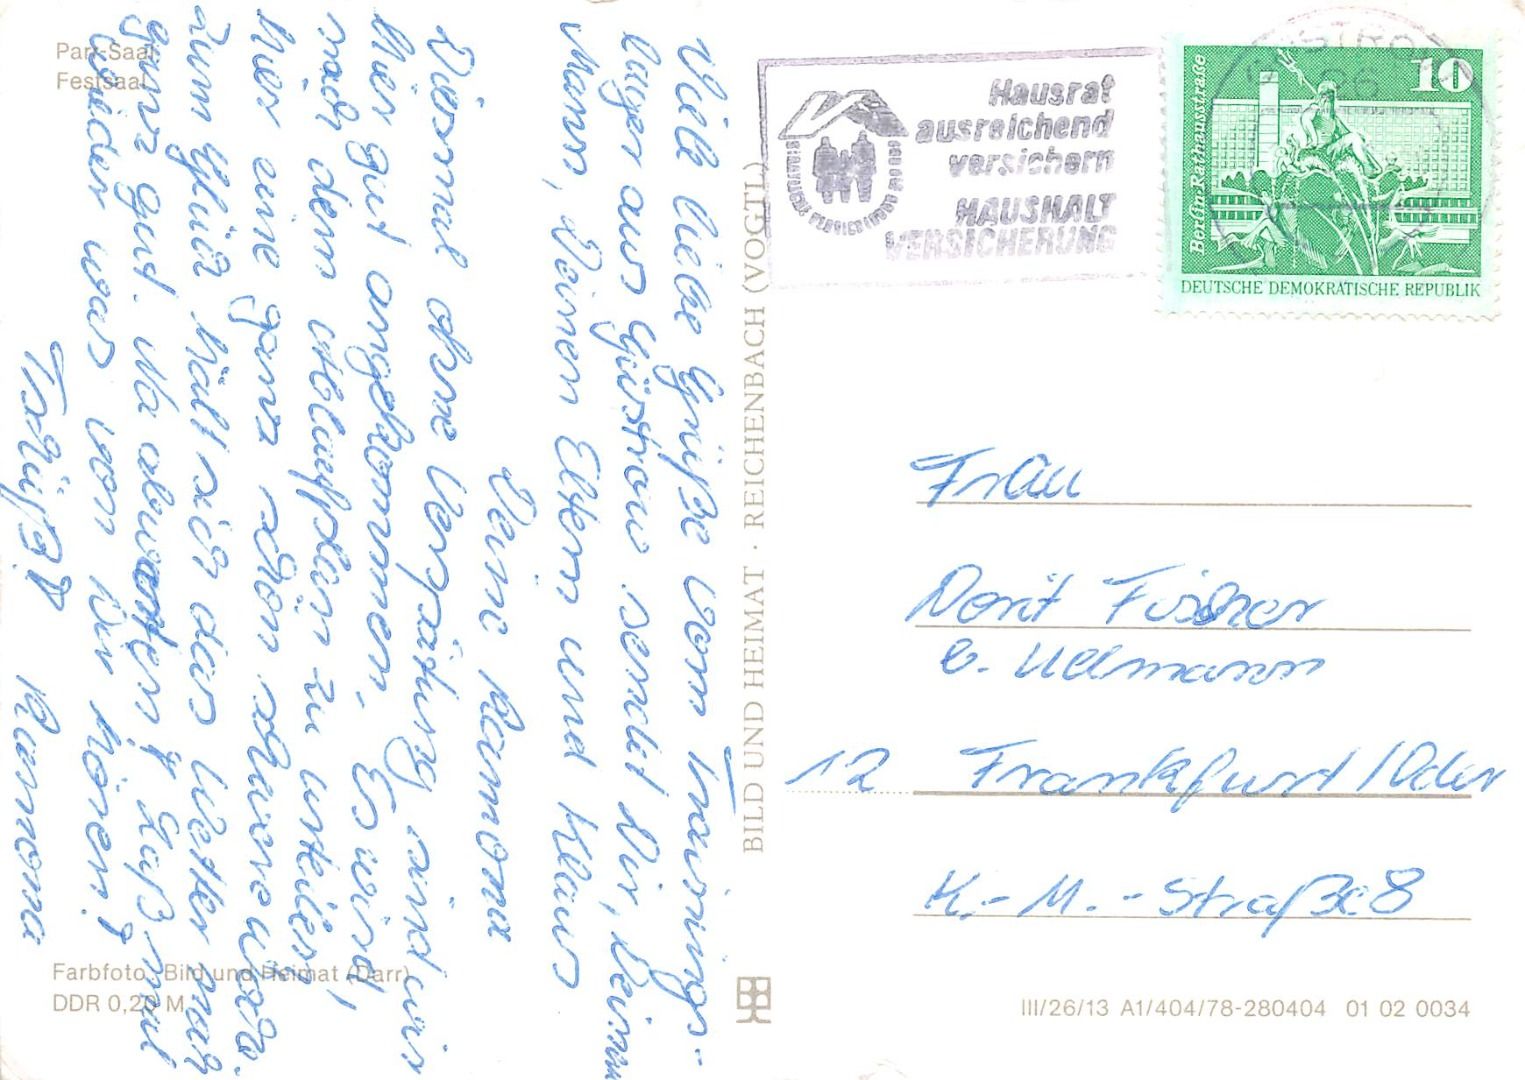 Parr-Saal
Festsaal
Viele liebe Grüße vom Trainings-
lager aus Güstrow sendet Dir, Deinem
Mann, Deinen Eltern und Klaus
Deine Ramona
Diesmal ohne Verspätung sind wir
hier gut angekommen. Es wird,
nach dem Ablaufplan zu urteilen,
hier eine ganz schön schwere Woche.
Zum Glück hält sich das Wetter noch
ganz gut. Na abwarten! Laß mal
wieder was von Dir hören!
Tschüß!
Ramona
Farbfoto: Bild und Heimat (Darr)
DDR 0,20 M
BILD UND HEIMAT · REICHENBACH (VOGTL)
Hausrat
ausreichend
versichern
HAUSHALT
VERSICHERUNG
STAATLICHE VERSICHERUNG DER DDR
10
Berlin·Rathausstraße
DEUTSCHE DEMOKRATISCHE REPUBLIK
Frau
Dorit Fischer
b. Uellmann
12 Frankfurt/Oder
K.-M.-Straße 8
III/26/13 A1/404/78-280404 01 02 0034